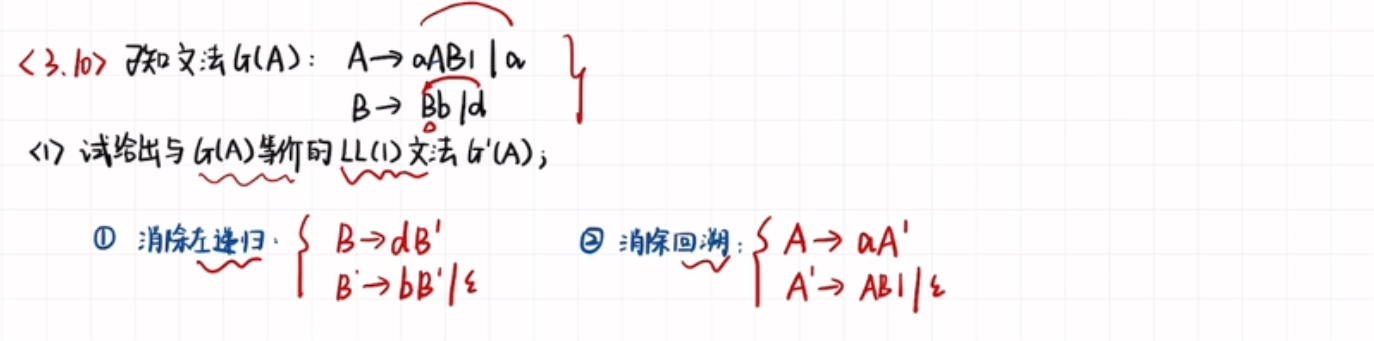 <3.10> 已知文法G(A): A→aABl|a
B→Bb|d
<1> 试给出与G(A)等价的LL(1)文法G'(A);
① 消除左递归: B→dB' ② 消除回溯: A→aA'
B'→bB'|ε A'→ABl|ε